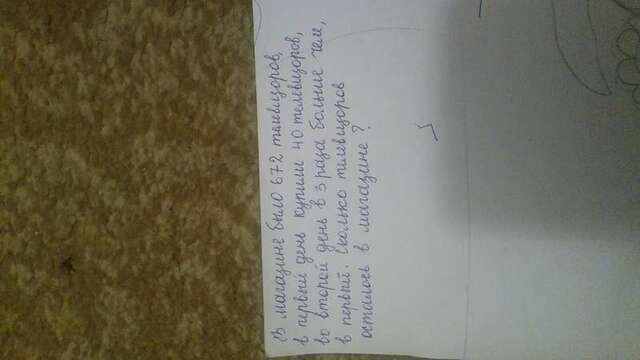 В магазине было 672 телевизоров,
в первый день купили 40 телевизоров,
во второй день в 3 раза больше чем,
в первый. Сколько телевизоров
осталось в магазине?